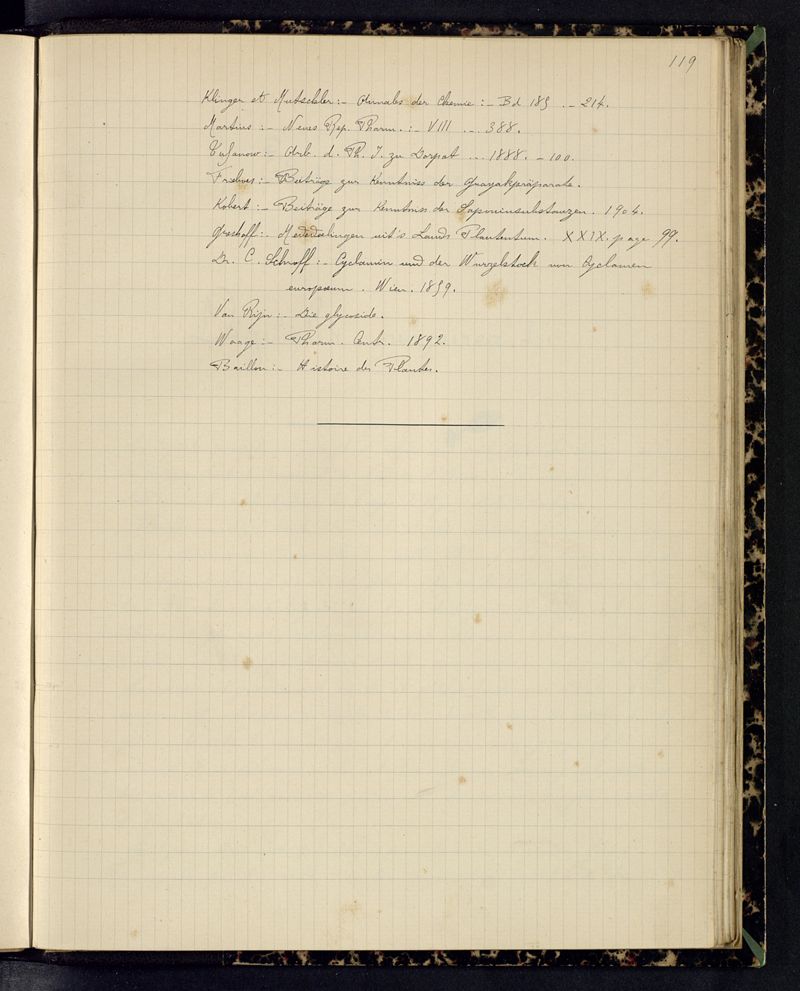 119
Klinger et Mutschler :- Annales der Chemie :- Bd 185 .- 214.
Martius :- Neues Rep. Pharm. :- VIII ... 388.
Tufanow :- Arb. d. Ph. I. zu Dorpat ... 1888. - 100.
Frœbnes :- Beiträge zur Kenntniss der Guayakpräparate.
Kobert :- Beiträge zur Kenntniss der Saponinsubstanzen. 1904.
Greshoff :- Mededeelingen uit's Lands Plantentuin. XXIX. page 99.
Dr. C. Schroff :- Cyclamin und der Wurzelstock von Cyclamen
europæum. Wien. 1859.
Van Rijn :- Die glycoside.
Waage :- Pharm. Centr. 1892.
Baillon :- Histoire des Plantes.